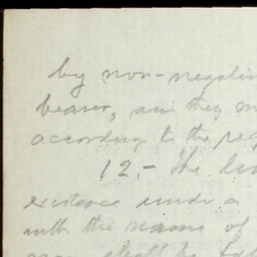 by non-negotia
bearer, and they m
according to the req
12.- The li
existence under a
with the name of
shall be